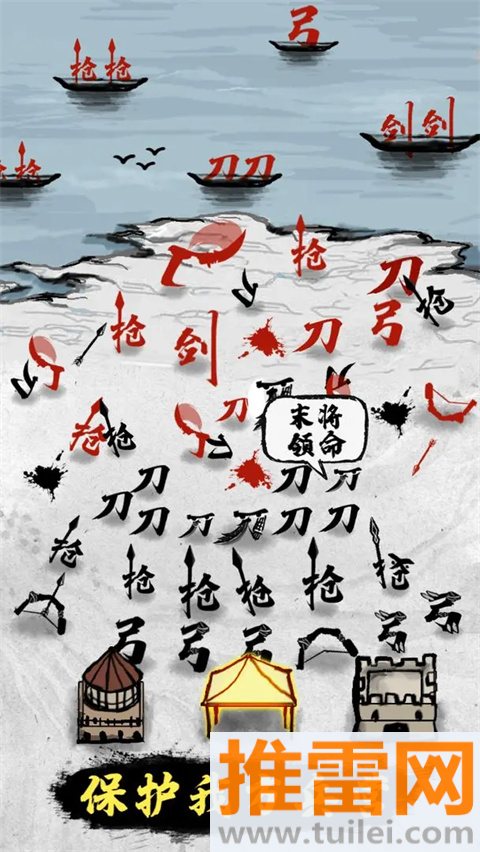 弓
枪枪
剑剑
枪
刀刀
枪
刀
枪
弓
枪
剑
刀
刀
枪
枪
末将
领命
刀
刀
刀
刀
刀
刀
刀
刀
枪
枪
枪
枪
枪
枪
枪
弓
弓
弓
弓
弓
保护我
推雷网
www.tuilei.com